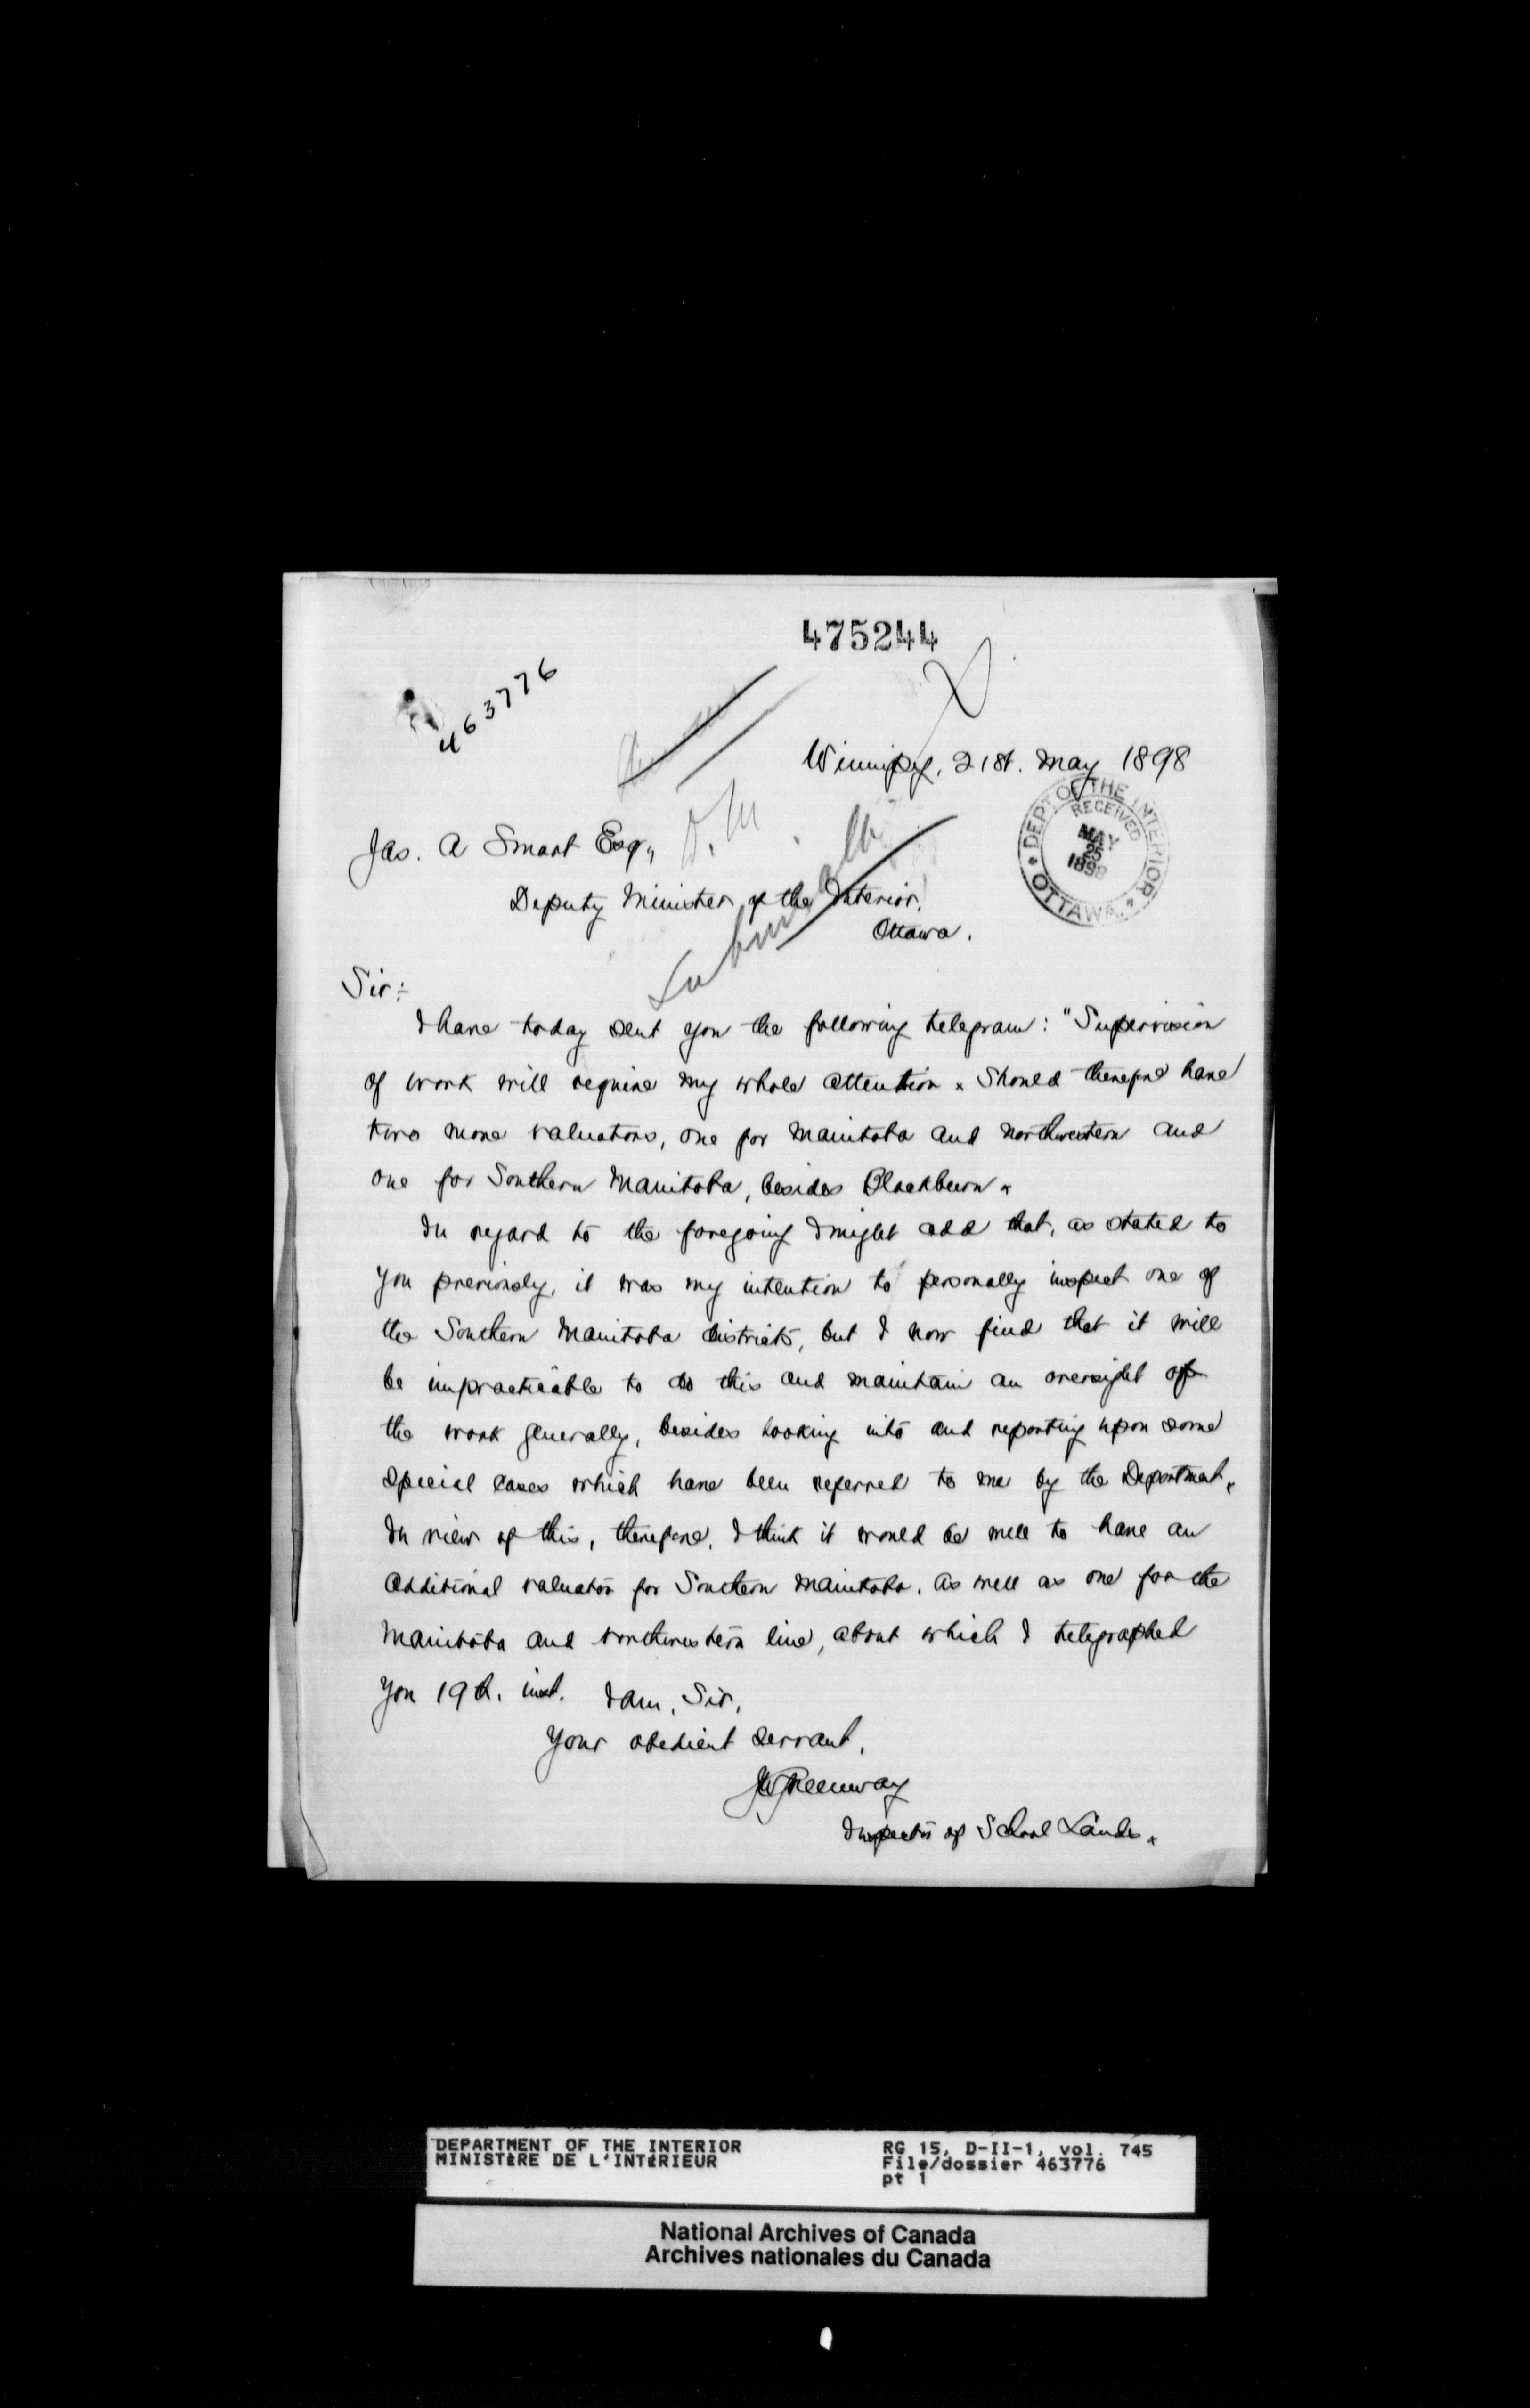 475244
463776
Winnipeg, 21st. May 1898
DEPT OF THE INTERIOR
RECEIVED
MAY
25
1898
OTTAWA
Jas. A Smart Esq.,
D.M.
Deputy Minister of the Interior,
Ottawa.
Submitted
Sir:
I have today sent you the following telegram: "Supervision
of work will require my whole attention x Should therefore have
two more valuators, one for Manitoba and Northwestern and
one for Southern Manitoba, besides Blackburn x
In regard to the foregoing I might add that, as stated to
you previously, it was my intention to personally inspect one of
the Southern Manitoba districts, but I now find that it will
be impracticable to do this and maintain an oversight of
the work generally, besides looking into and reporting upon some
special cases which have been referred to me by the Department.
In view of this, therefore, I think it would be well to have an
additional valuator for Southern Manitoba, as well as one for the
Manitoba and Northwestern line, about which I telegraphed
you 19th. inst. I am, Sir,
Your obedient servant,
JWGreenway
Inspector of School Lands.
DEPARTMENT OF THE INTERIOR
MINISTÈRE DE L'INTÉRIEUR
RG 15, D-II-1, vol. 745
File/dossier 463776
pt 1
National Archives of Canada
Archives nationales du Canada